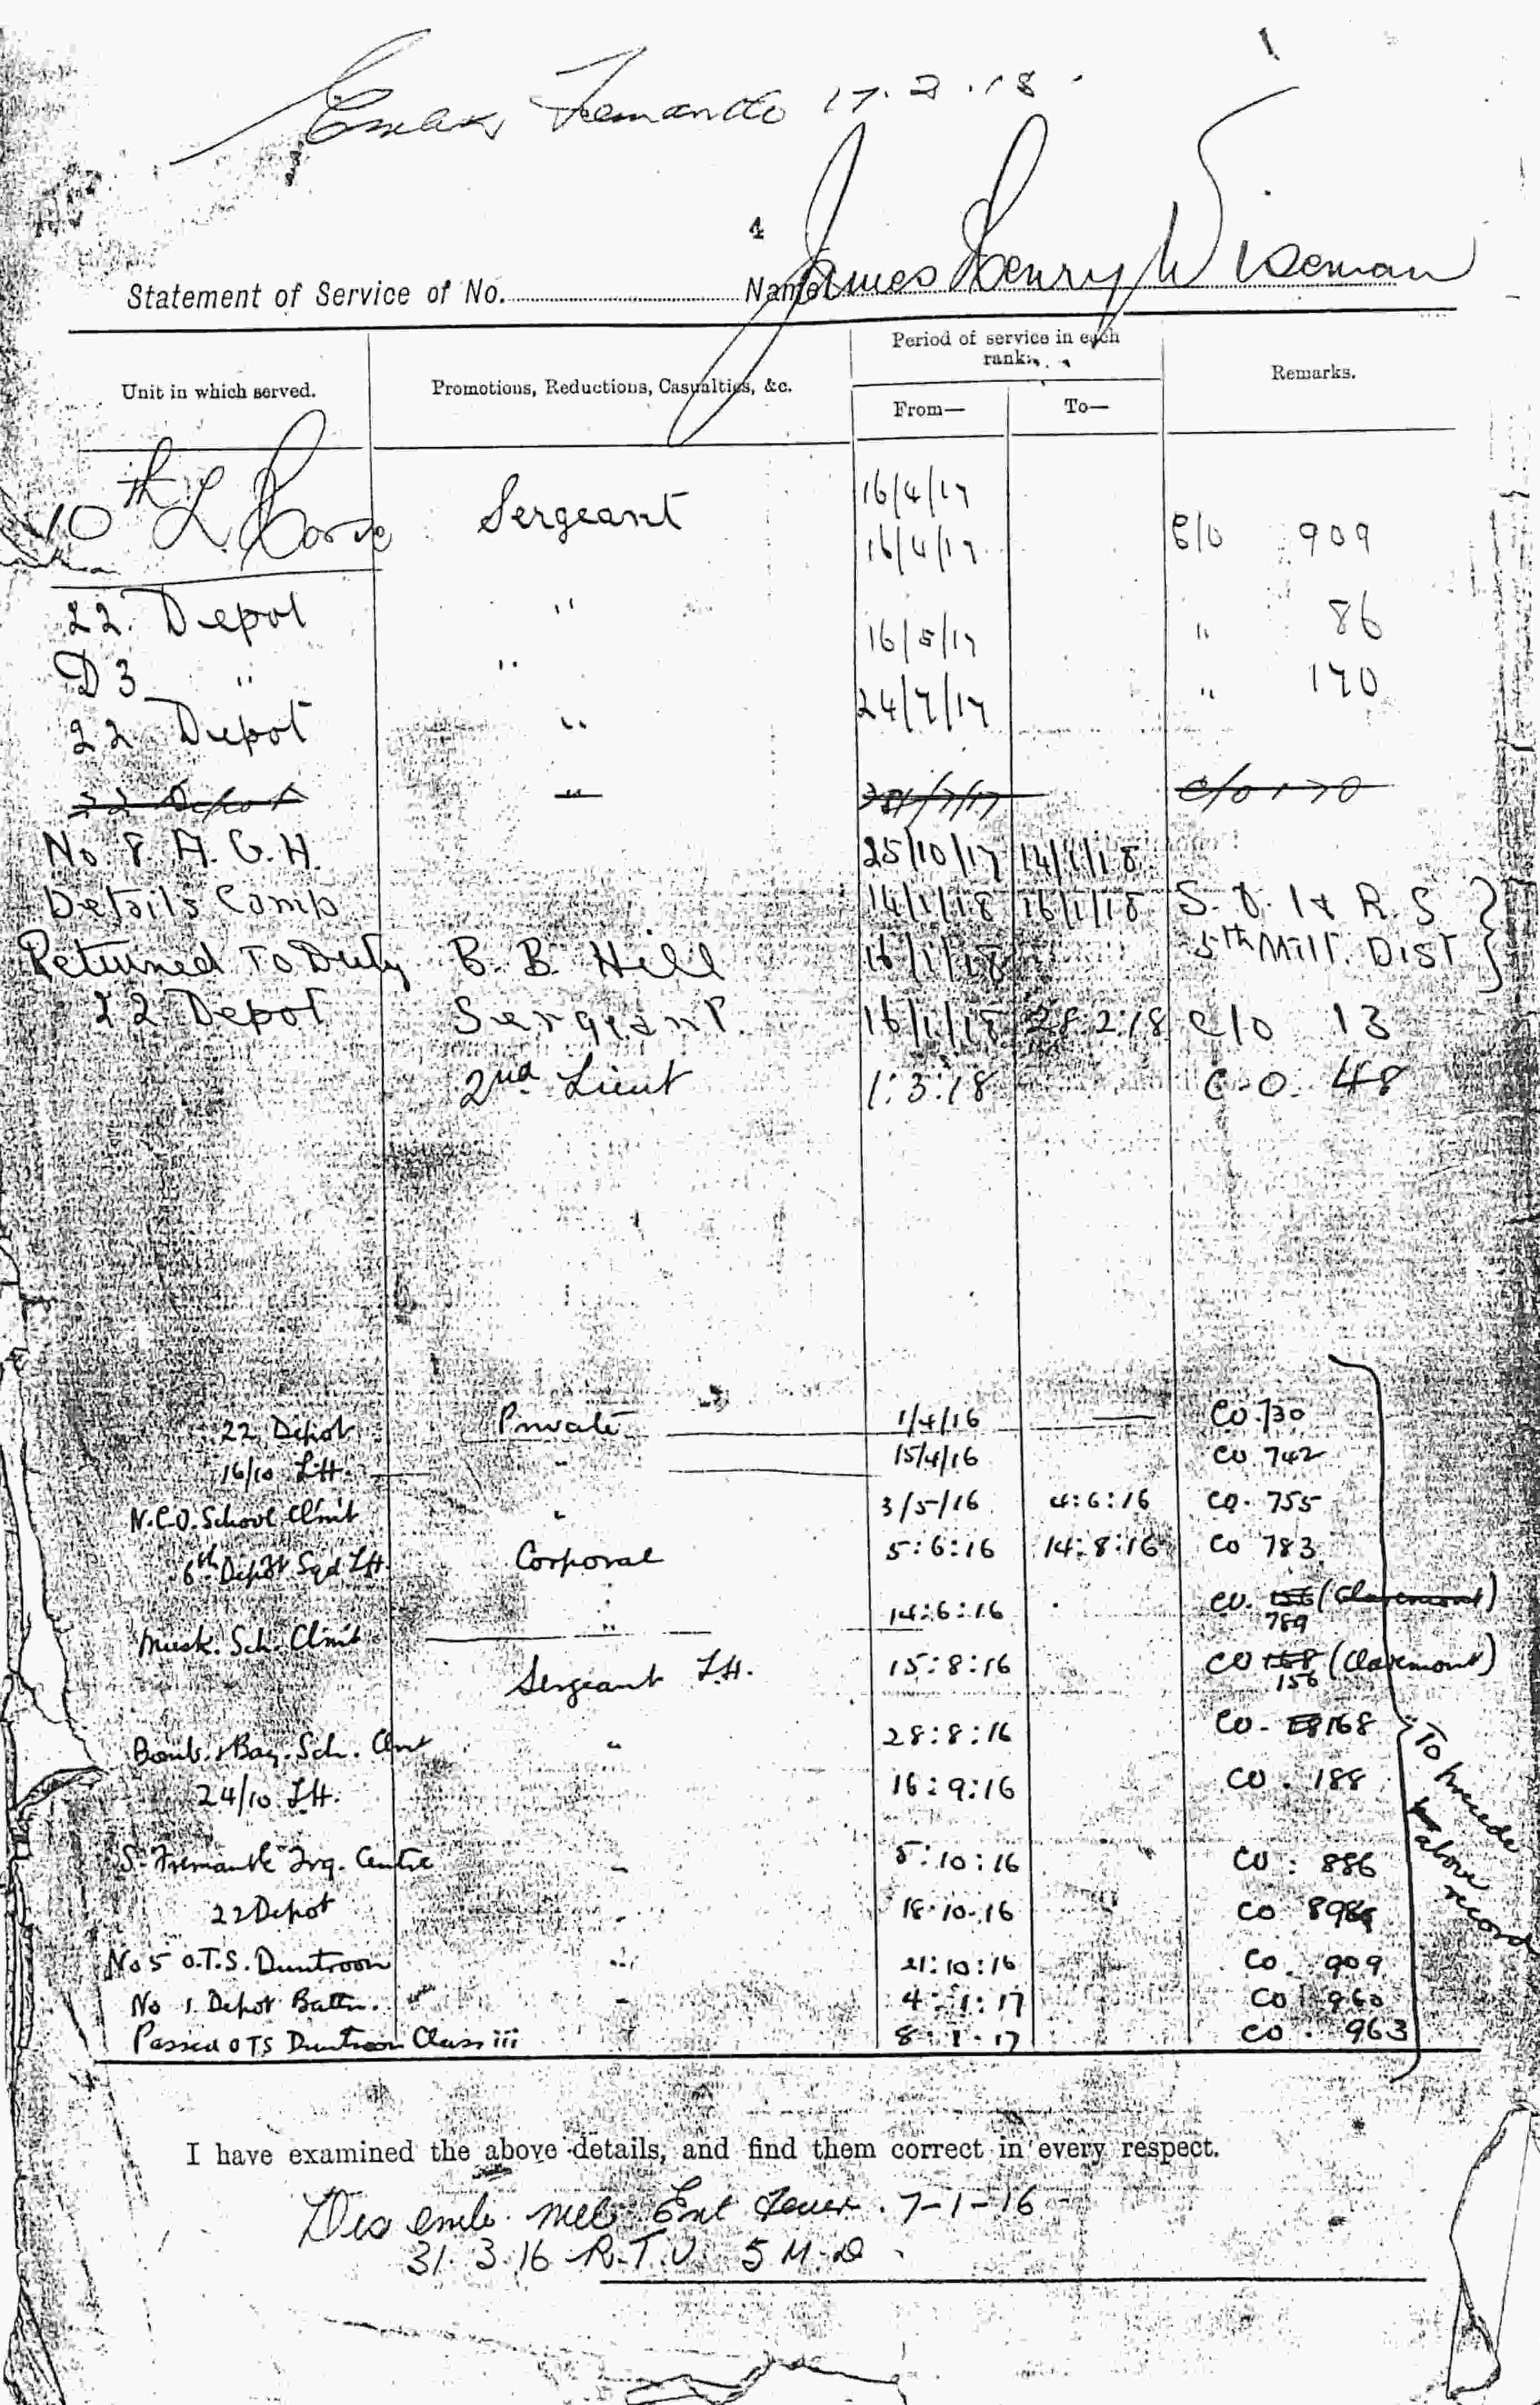 17.3.18
4
Statement of Service of No. Name James Henry Wiseman
Unit in which served. Promotions, Reductions, Casualties, &c. Period of service in each rank. From— To— Remarks.
10th L. Horse Sergeant 16/4/17
16/4/17 C/O 909
22. Depot " 16/5/17 " 86
D3 " " 24/7/17 " 170
22 Depot "
22 Depot " 24/7/17 C/o 170
No. 8 A. G. H. 25/10/17 14/1/18
Details Camp 14/1/18 16/1/18 S. O. I & R. S
Returned To Duty B. B. Hill 16/1/18 5th Milt. Dist
22 Depot Sergeant. 16/1/18 28.2.18 C/o 13
2nd Lieut 1:3:18 C.O. 48
22 Depot Private 1/4/16 — CO. 730
16/10 LH. " 15/4/16 CO 742
N.C.O. School Clmt " 3/5/16 4:6:16 CO. 755
6th Depot Sqd LH. Corporal 5:6:16 14:8:16 CO 783
Musk. Sch. Clmt " 14:6:16 CO. 156 (Claremont)
789
Sergeant LH. 15:8:16 CO 168 (Claremont)
156
Bomb. & Bay. Sch. Clmt " 28:8:16 CO. 168
24/10 LH. 16:9:16 CO. 188
S. Fremantle Trg. Centre " 5:10:16 CO: 886
22 Depot " 18.10.16 CO
No 5 O.T.S. Duntroon " 21:10:16 CO. 909
No 1. Depot Battn. " 4:1:17 CO 960
Passed OTS Duntroon Class iii 8:1:17 CO. 963
To precede above record
I have examined the above details, and find them correct in every respect.
Dis emb. Mel. Ent Fever. 7-1-16
31.3.16 R.T.U. 5 M.D.